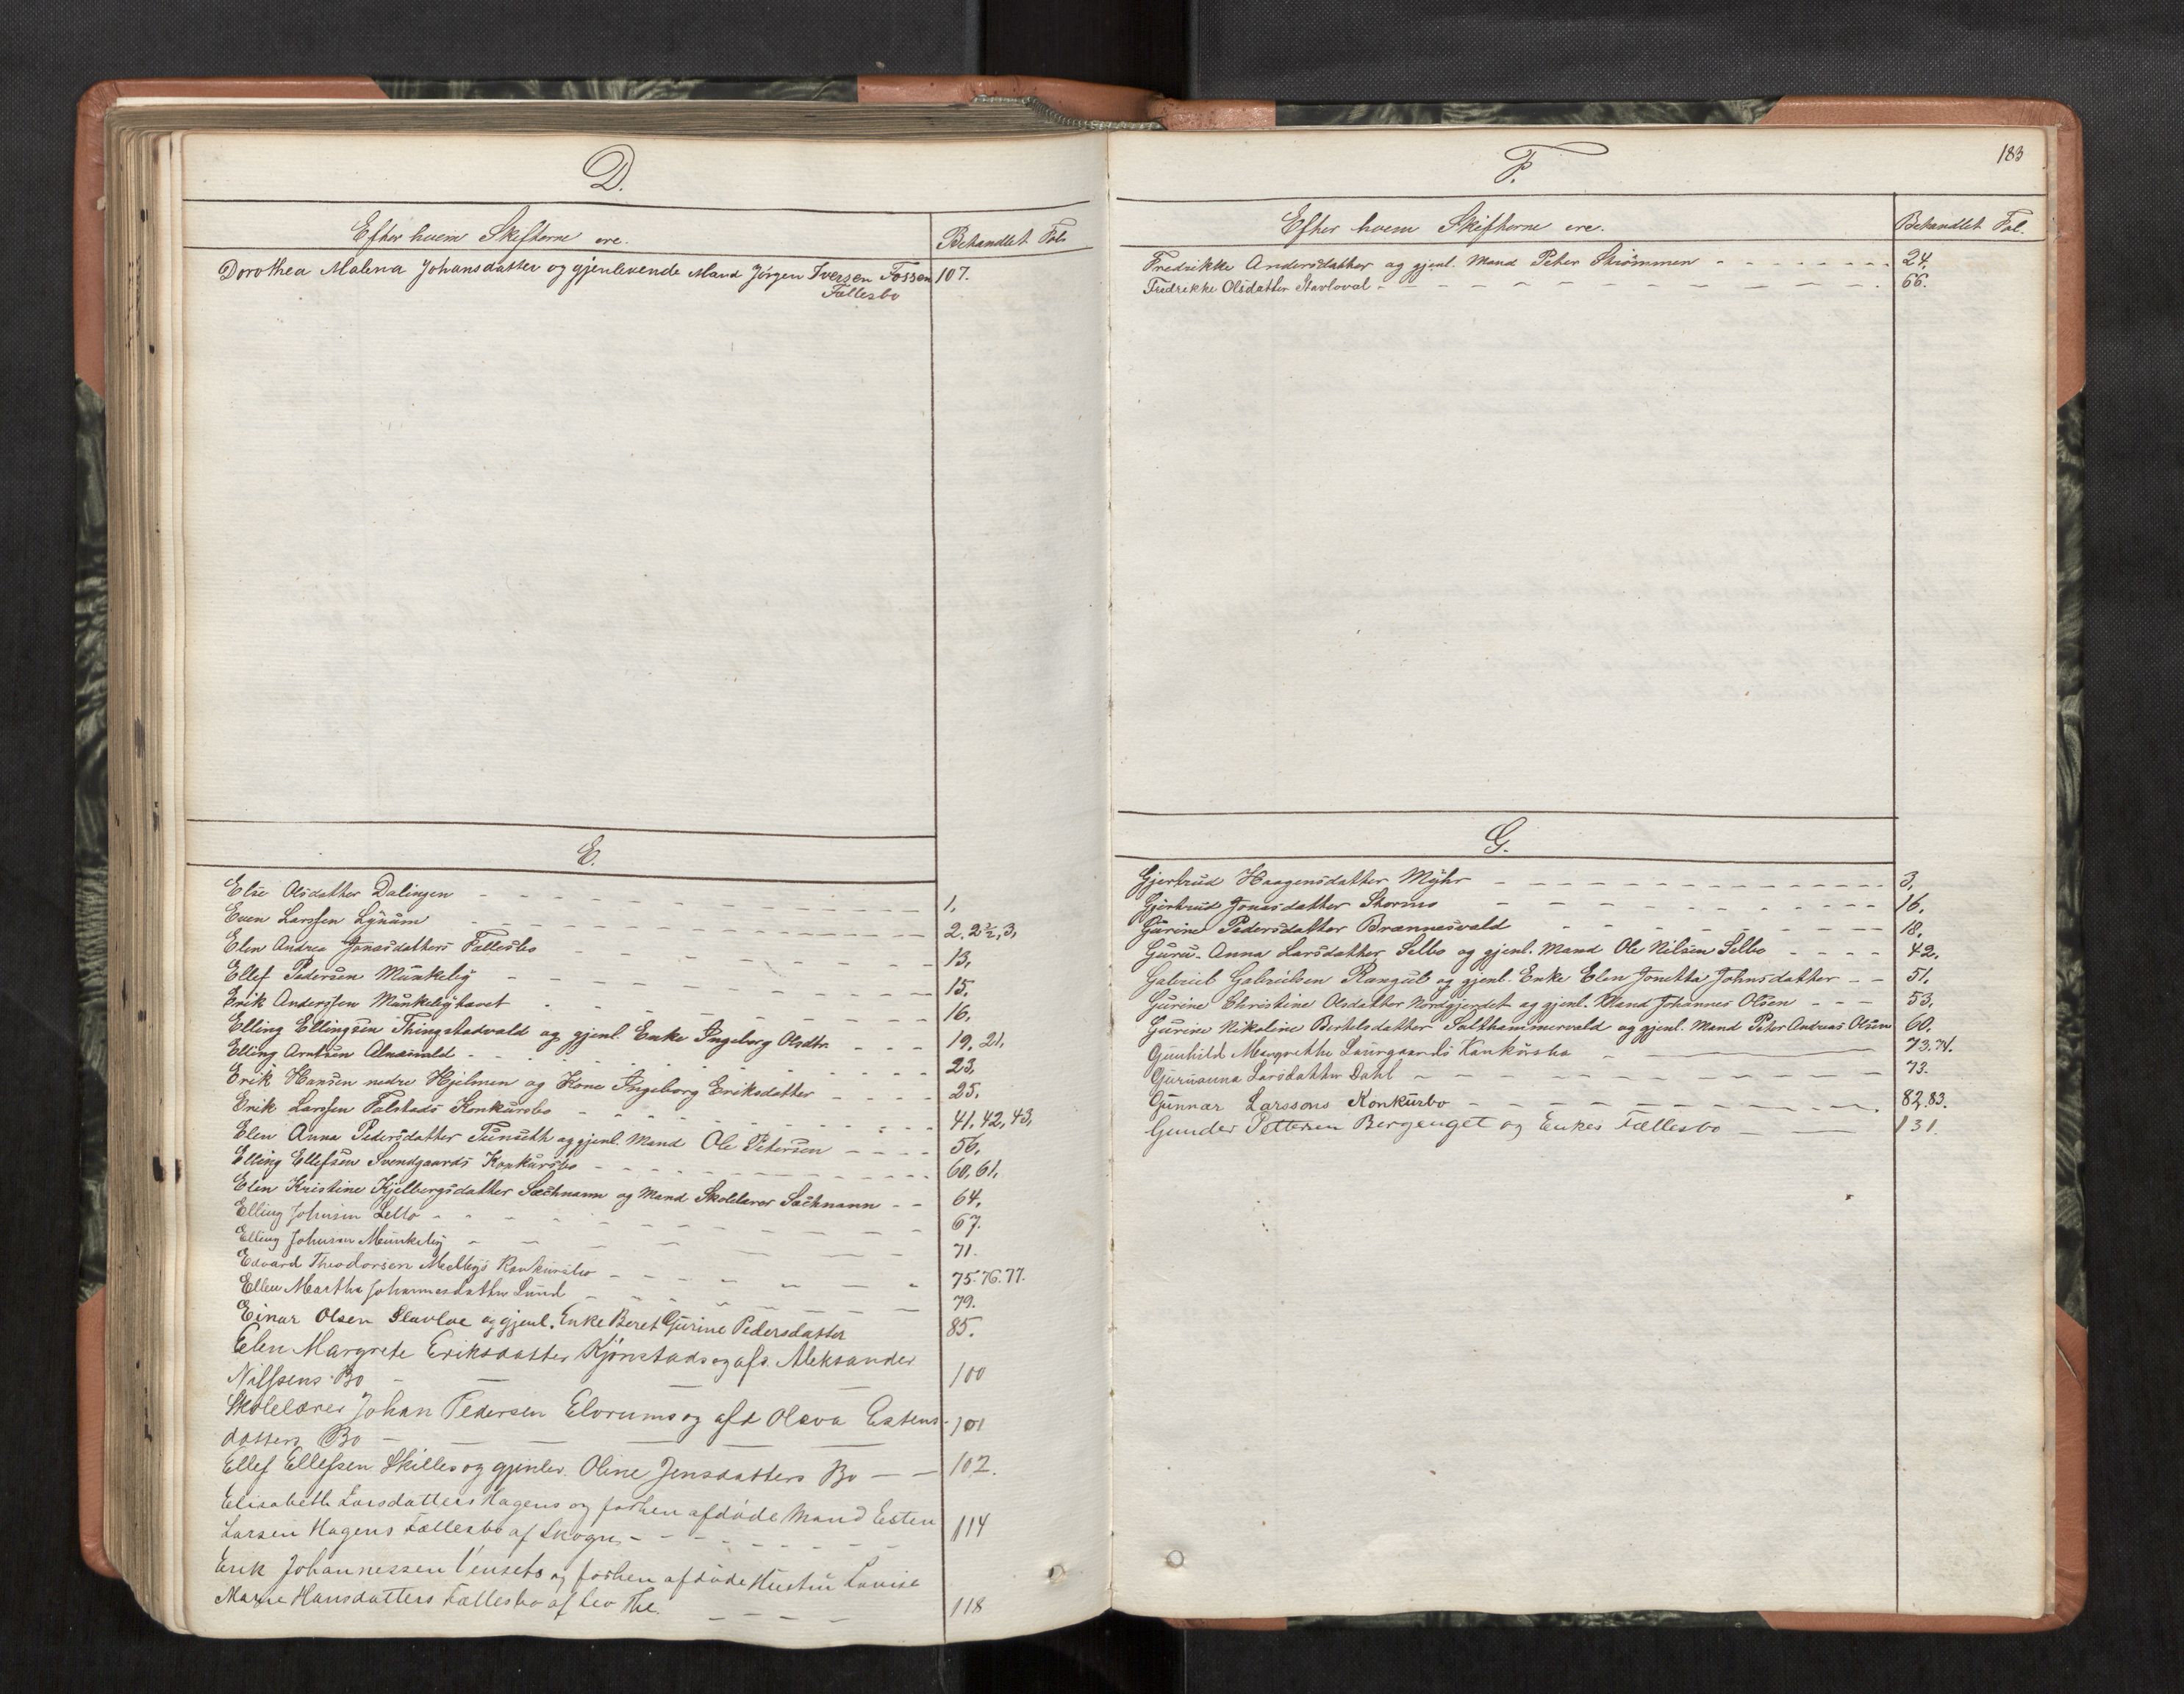 D.
Efter hvem Skifterne ere.
Behandlet Fol.
Dorothea Malena Johansdatter og gjenlevende Mand Jörgen Iversen Fossen 107.
Fællesbo
E.
Else Olsdatter Dalingen 1.
Even Larssen Lÿnum 2. 2½, 3,
Elen Andrea Jonasdatters Fællesbo 13,
Ellef Pedersen Munkeby 15.
Erik Anderssen Munkebyhavet 16.
Elling Ellingsen Thingstadvald og gjenl. Enke Ingeborg Olsdtr. 19, 21,
Elling Arntsen Alnæsvald 23,
Erik Hansen nedre Hjelmen og Kone Ingeborg Eriksdatter 25.
Erik Larssen Falstads Konkursbo 41, 42, 43,
Elen Anna Pedersdatter Tunseth og gjenl. Mand Ole Petersen 56,
Elling Ellefsen Svendgaards Konkursbo 60, 61,
Elen Kristine Kjelbergsdatter Sachnann og Mand Skolelærer Sachnann 64,
Elling Johnsen Lello 67.
Elling Johnsen Munkeby 71.
Edvard Theodorsen Melbys Konkursbo 75. 76. 77.
Ellen Martha Johannesdatter Lund 79.
Einar Olsen Slavloe og gjenl. Enke Beret Gurine Pedersdatter 85.
Elen Margrete Eriksdatter Kjönstads og afd. Aleksander
Nilssens Bo 100
Skolelærer Johan Pedersen Elvrums og afd Olava Estens-
datters Bo 101
Ellef Ellefsen Skilles og gjenlev. Oline Jensdatters Bo 102.
Elisabeth Larsdatters Hagens og forhen afdöde Mand Esten
Larsen Hagens Fællesbo af Skogn 114
Erik Johannessen Vensets og forhen afdöde Hustru Lovise
Marie Hansdatters Fællesbo af Levr. 118
183
F.
Efter hvem Skifterne ere.
Behandlet Fol.
Fredrikke Andersdatter og gjenl. Mand Peter Strömmen 24,
Fredrikke Olsdatter Stavloval 66.
G.
Gjertrud Haagensdatter Myhr 3,
Gjertrud Jonasdatter Stormo 16,
Gurine Pedersdatter Brænnesvald 18,
Guru-Anna Larsdatter Selbo og gjenl. Mand Ole Nilsen Selbo 42.
Gabriel Gabrielsen Rangul og gjenl. Enke Elen Jonetta Johnsdatter 51,
Gurine Christine Olsdatter Nordgjerdet og gjenl. Mand Johannes Olsen 53,
Gurine Nikoline Bertelsdatter Salthammervald og gjenl. Mand Peter Andreas Olsen 60.
Gunhild Margrethe Laurgaards Konkursbo 73. 74.
Guruanna Larsdatter Dahl 73.
Gunnar Larssons Konkurbo 82. 83.
Gunder Pettersen Bergenget og Enkes Fællesbo 131.